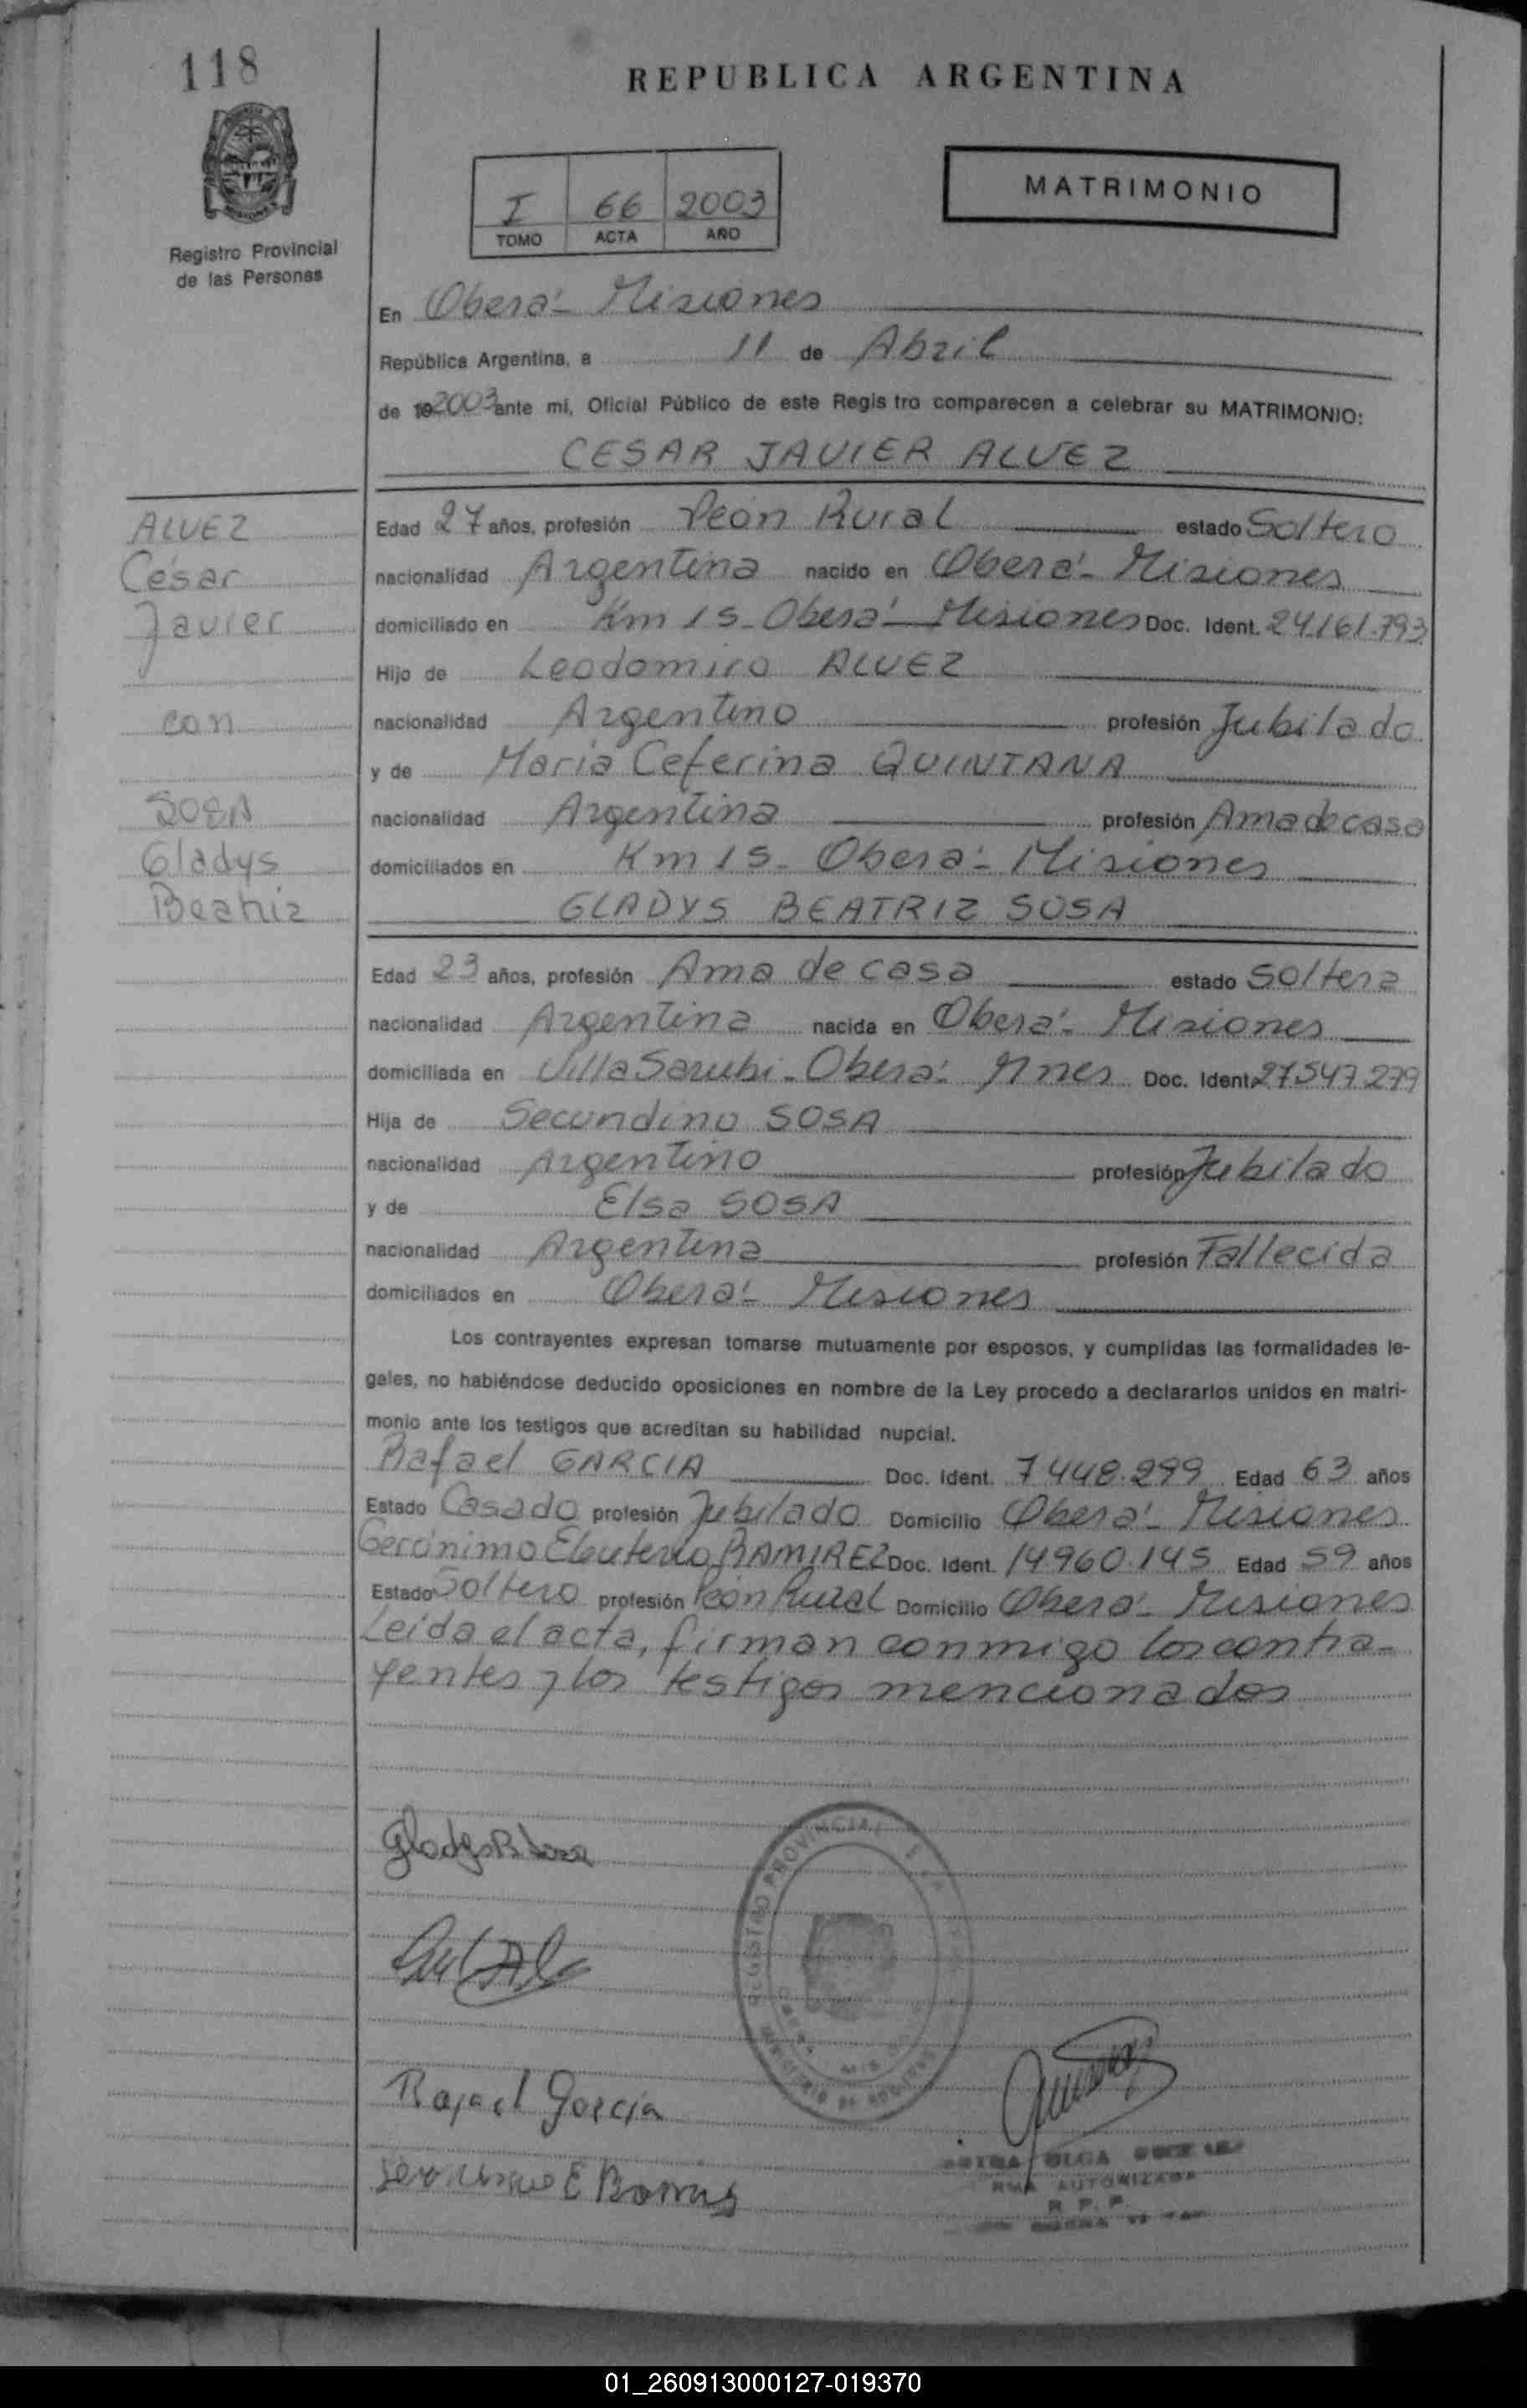 118
REPUBLICA ARGENTINA
MATRIMONIO
I 66 2003
TOMO ACTA AÑO
Registro Provincial
de las Personas
En Oberá - Misiones
República Argentina, a 11 de Abril
de 19 2003 ante mi, Oficial Público de este Regis tro comparecen a celebrar su MATRIMONIO:
CESAR JAVIER ALVEZ
ALVEZ
César
Javier
con
SOSA
Gladys
Beatriz
Edad 27 años, profesión Peón Rural estado Soltero
nacionalidad Argentina nacido en Oberá - Misiones
domiciliado en Km 15 - Oberá - Misiones Doc. Ident. 24.161.793
Hijo de Leodomiro ALVEZ
nacionalidad Argentino profesión Jubilado
y de Maria Ceferina QUINTANA
nacionalidad Argentina profesión Ama de casa
domiciliados en Km 15 - Oberá - Misiones
GLADYS BEATRIZ SOSA
Edad 23 años, profesión Ama de casa estado Soltera
nacionalidad Argentina nacida en Oberá - Misiones
domiciliada en Villa Sarubi - Oberá - Mnes Doc. Ident. 27.547.279
Hija de Secundino SOSA
nacionalidad Argentino profesión Jubilado
y de Elsa SOSA
nacionalidad Argentina profesión Fallecida
domiciliados en Oberá - Misiones
Los contrayentes expresan tomarse mutuamente por esposos, y cumplidas las formalidades le-
gales, no habiéndose deducido oposiciones en nombre de la Ley procedo a declararlos unidos en matri-
monio ante los testigos que acreditan su habilidad nupcial.
Rafael GARCIA Doc. Ident. 7.448.299 Edad 63 años
Estado Casado profesión Jubilado Domicilio Oberá - Misiones
Gerónimo Eleuterio RAMIREZ Doc. Ident. 14.960.145 Edad 59 años
Estado Soltero profesión Peón Rural Domicilio Oberá - Misiones
Leida el acta, firman conmigo los contra-
yentes y los testigos mencionados
Gladys B Sosa
REGISTRO PROVINCIAL
Rafael Garcia
OLGA
AUTORIZADA
R. P. P.
01_260913000127-019370